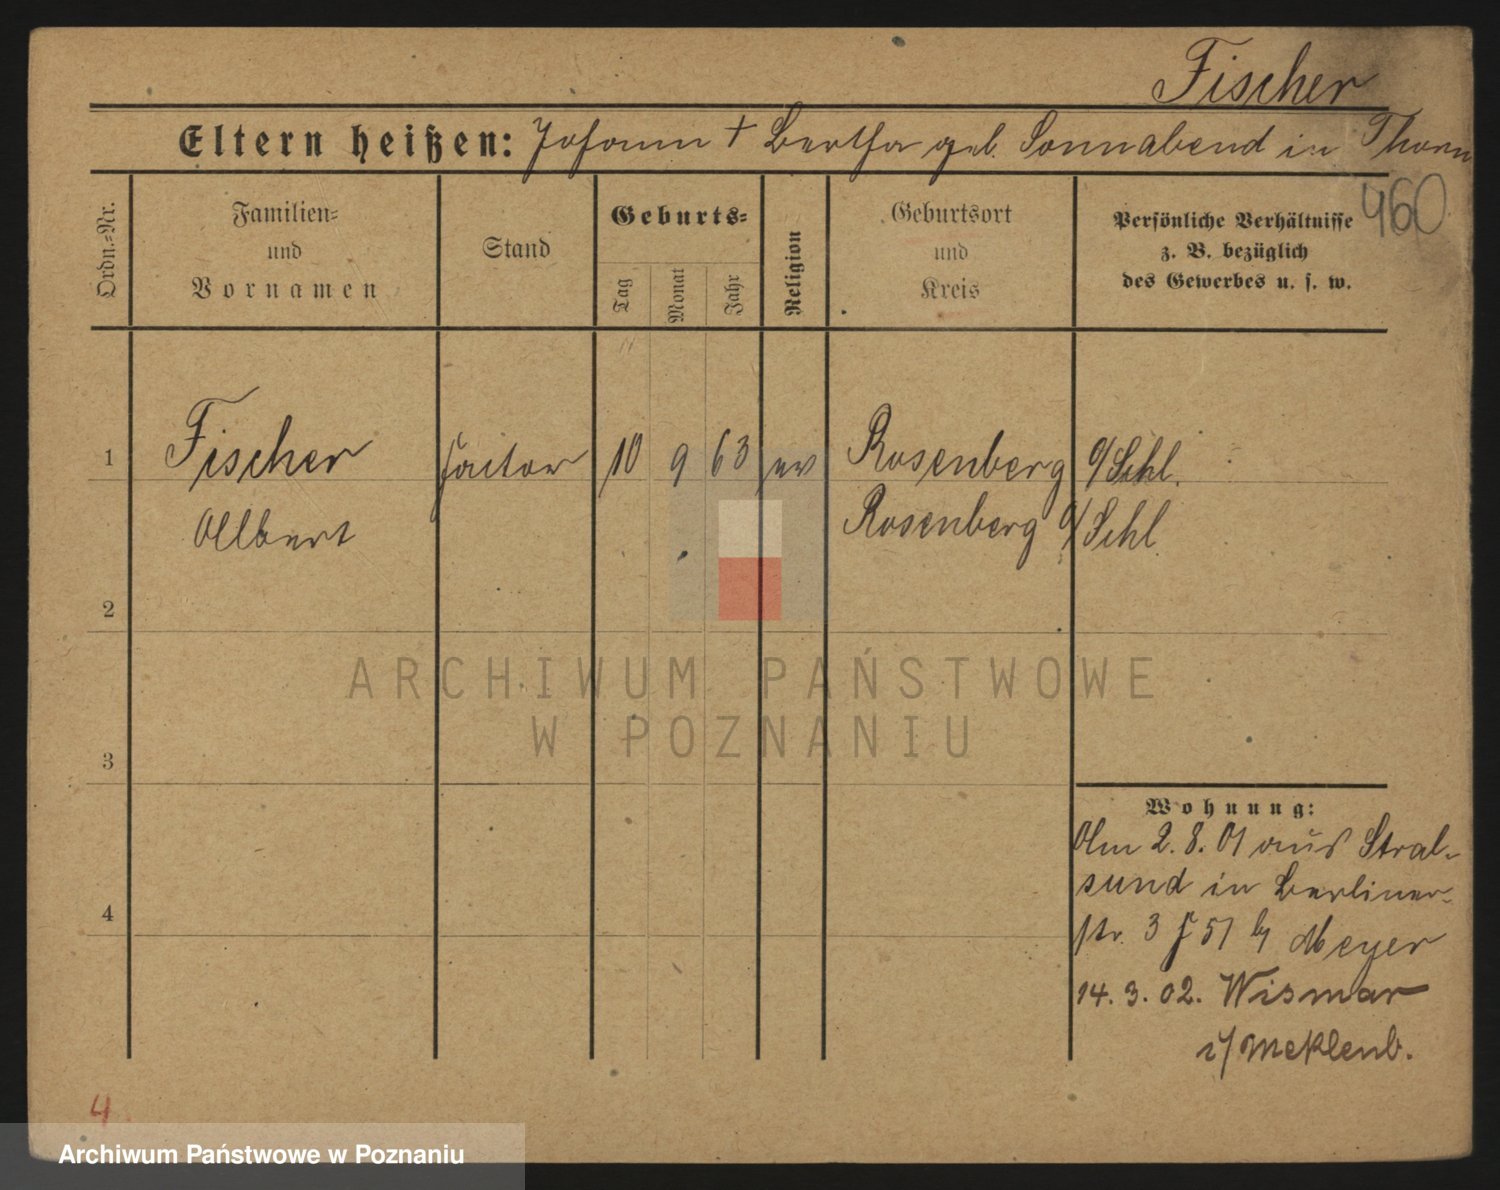 Fischer
Eltern heißen: Johann † Bertha geb. Sonnabend in Thorn
460
Ordn.=Nr.
Familien=
und
Vornamen
Stand
Geburts=
Tag
Monat
Jahr
Religion
Geburtsort
und
Kreis
Persönliche Verhältnisse
z. B. bezüglich
des Gewerbes u. s. w.
1 Fischer Factor 10 9 63 ev Rosenberg O/Schl.
Albert Rosenberg O/Schl
2
3
4
ARCHIWUM PAŃSTWOWE
W POZNANIU
Wohnung:
Am 2. 8. 01 aus Stral-
sund in Berliner-
str. 3 51 b/ Meyer
14. 3. 02. Wismar
i/ Meklenb.
4
Archiwum Państwowe w Poznaniu